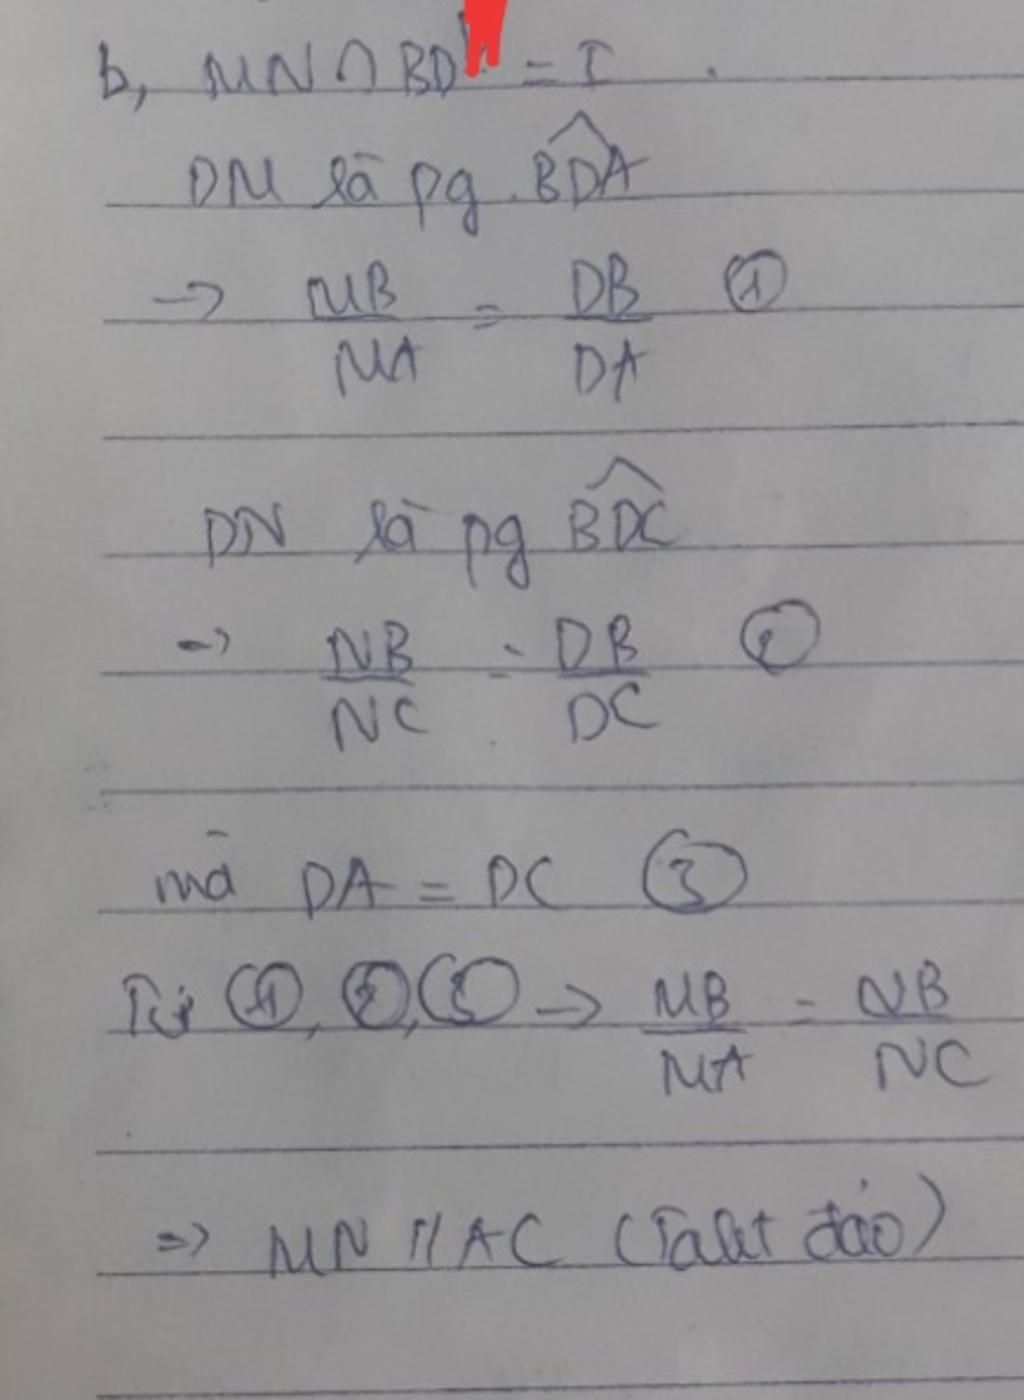 b, MN ∩ BD = I
DM là pg BDA
-> MB/MA = DB/DA ①
DN là pg BDC
-> NB/NC = DB/DC ②
mà DA = DC ③
Từ ①, ②, ③ -> MB/MA = NB/NC
=> MN // AC (Talet đảo)